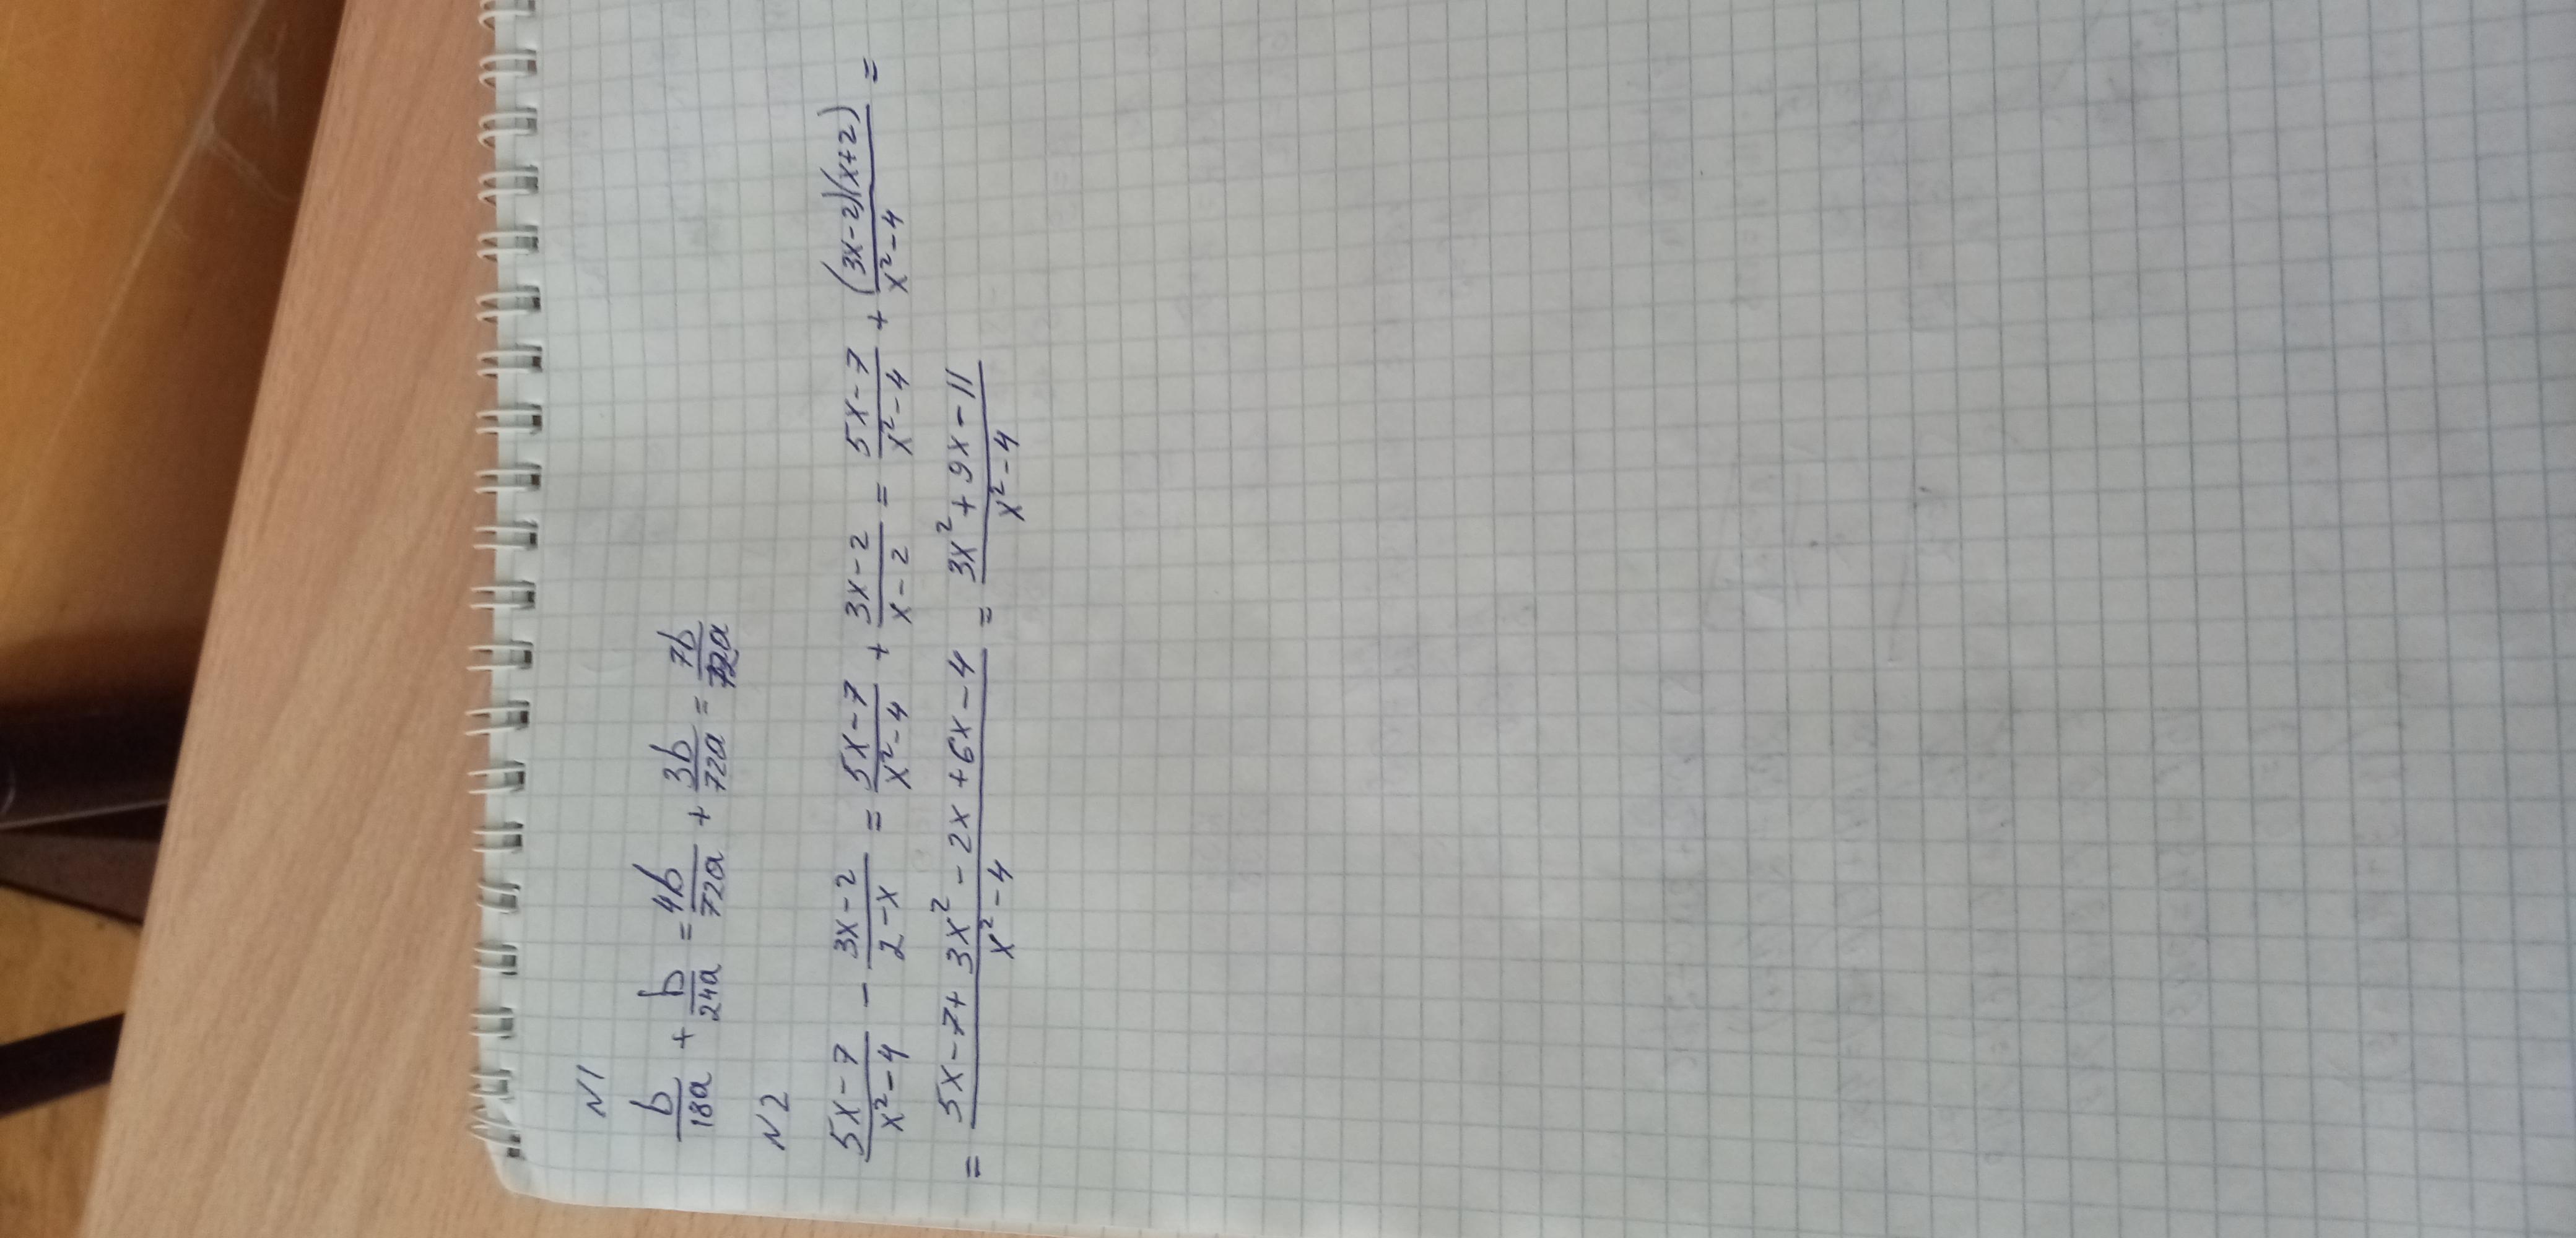 N1
b/18a + b/24a = 4b/72a + 3b/72a = 7b/72a
N2
5x-7/x²-4 - 3x-2/2-x = 5x-7/x²-4 + 3x-2/x-2 = 5x-7/x²-4 + (3x-2)(x+2)/x²-4 =
= 5x-7+3x²-2x+6x-4/x²-4 = 3x²+9x-11/x²-4